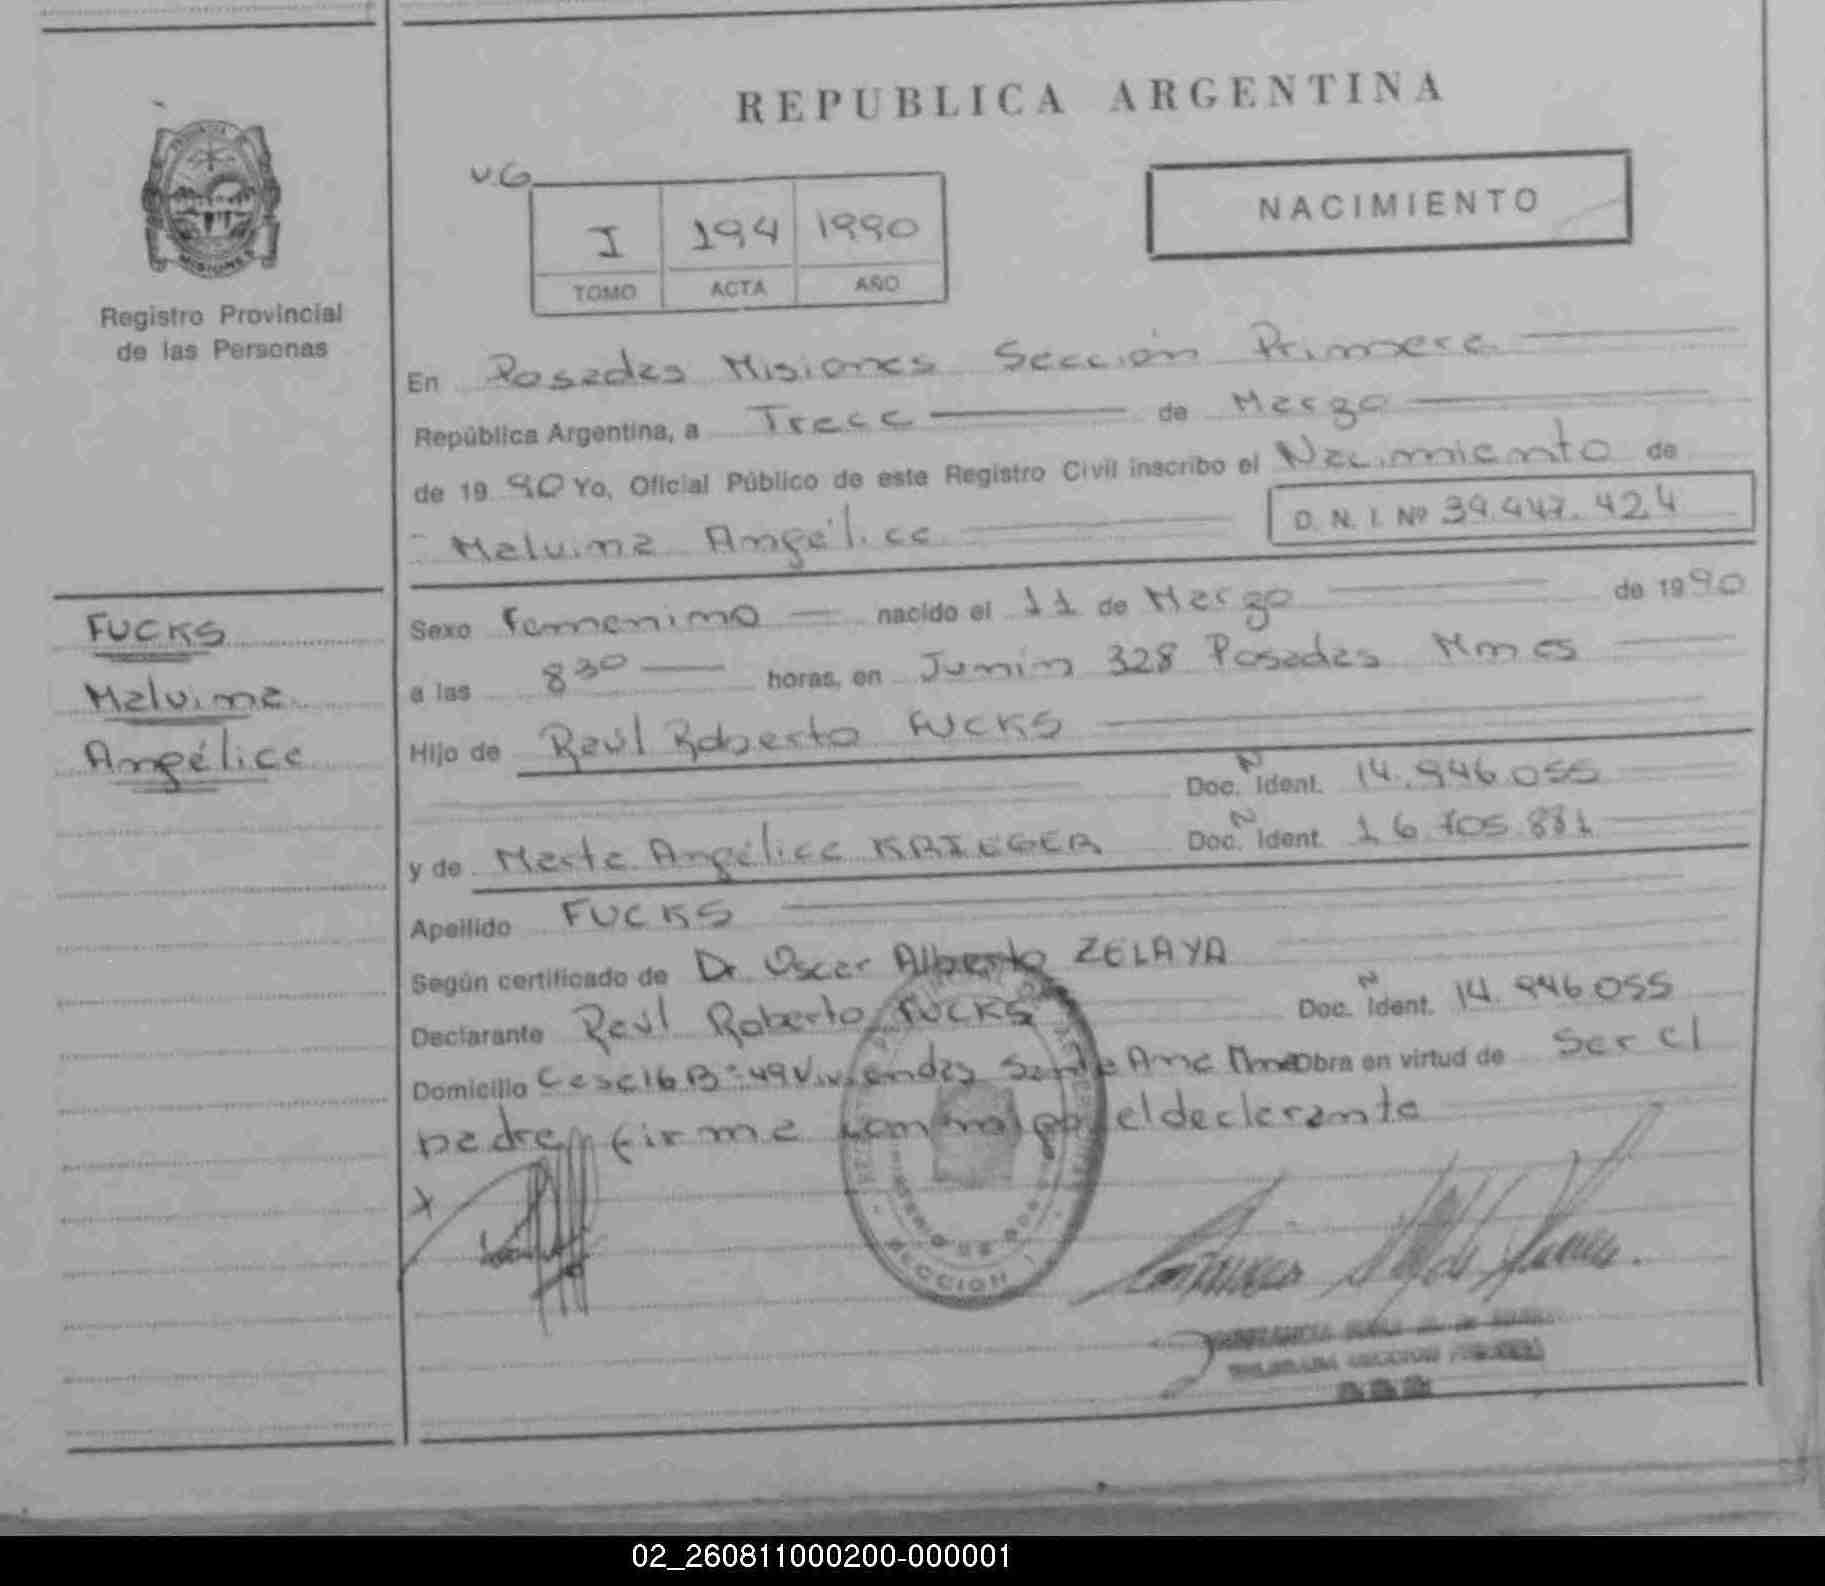 REPUBLICA ARGENTINA
NACIMIENTO
I 194 1990
TOMO ACTA AÑO
MISIONES
Registro Provincial
de las Personas
En Posadas Misiones Sección Primera
República Argentina, a Trece de Marzo
de 1990 Yo, Oficial Público de este Registro Civil inscribo el Nacimiento de
Malvina Angélica
D. N. I. Nº 39.447.424
FUCKS
Malvina
Angélica
Sexo Femenino nacido el 11 de Marzo de 1990
a las 8 30 horas, en Junín 328 Posadas Mnes
Hijo de Raúl Roberto FUCKS
Doc. N Ident. 14.946.055
y de Marta Angélica KRIEGER Doc. N Ident. 16.705.881
Apellido FUCKS
Según certificado de Dr Oscar Alberto ZELAYA
Declarante Raúl Roberto FUCKS Doc. N Ident. 14.946.055
Domicilio Casa 16 B= 49 Viviendas Santa Ana Mnes Obra en virtud de ser el
padre firma conmigo el declarante
SECCION I
02_260811000200-000001